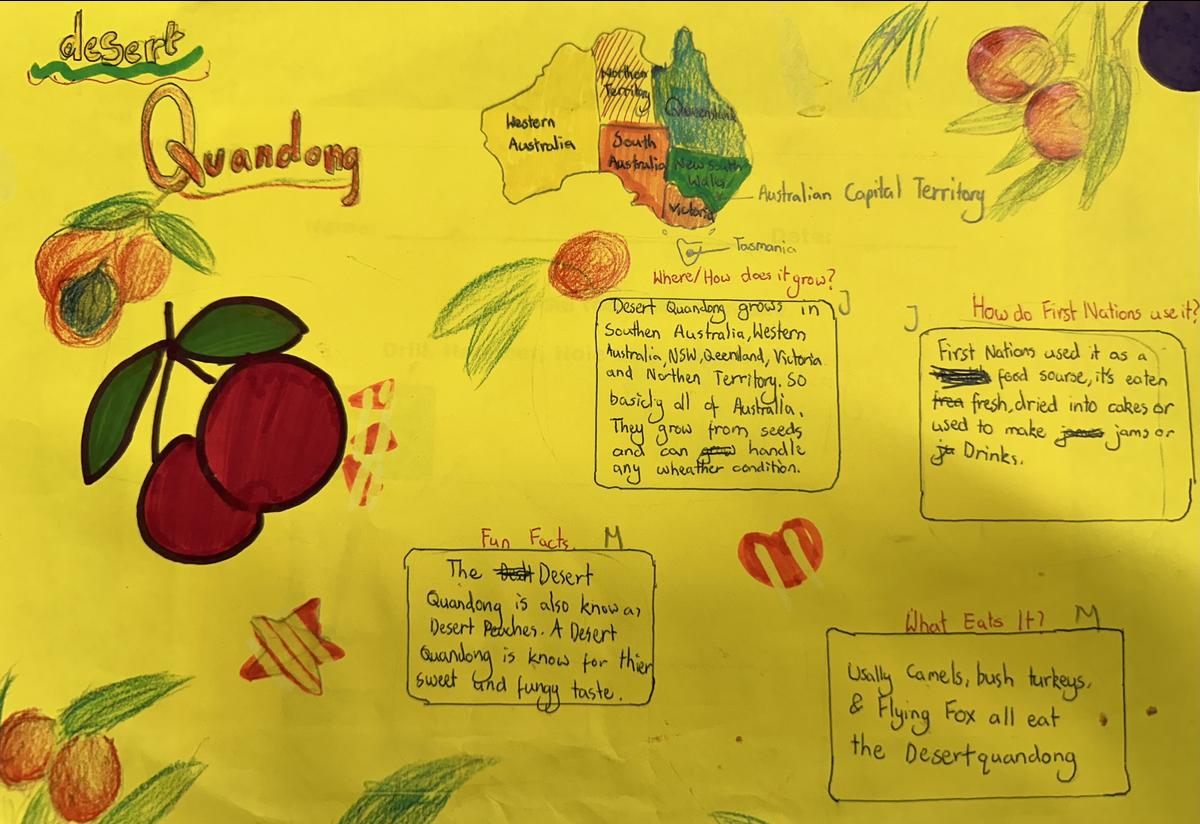 desert
Quandong
Western
Australia
Northern
Territory
Queensland
South
Australia
New South
Wales
Victoria
Australian Capital Territory
Tasmania
Where/How does it grow?
J
Desert Quandong grows in
Southen Australia, Western
Australia, NSW, Qeenland, Victoria
and Northen Territory. SO
basicly all of Australia.
They grow from seeds
and can grow handle
any wheather condition.
J
How do First Nations use it?
First Nations used it as a
food sourse, it's eaten
frea fresh, dried into cakes or
used to make jams or
ja Drinks.
Fun Facts M
The Desert
Quandong is also know as
Desert Peaches. A Desert
Quandong is know for thier
sweet and fungy taste.
What Eats It? M
Usally Camels, bush turkeys,
& Flying Fox all eat
the Desertquandong